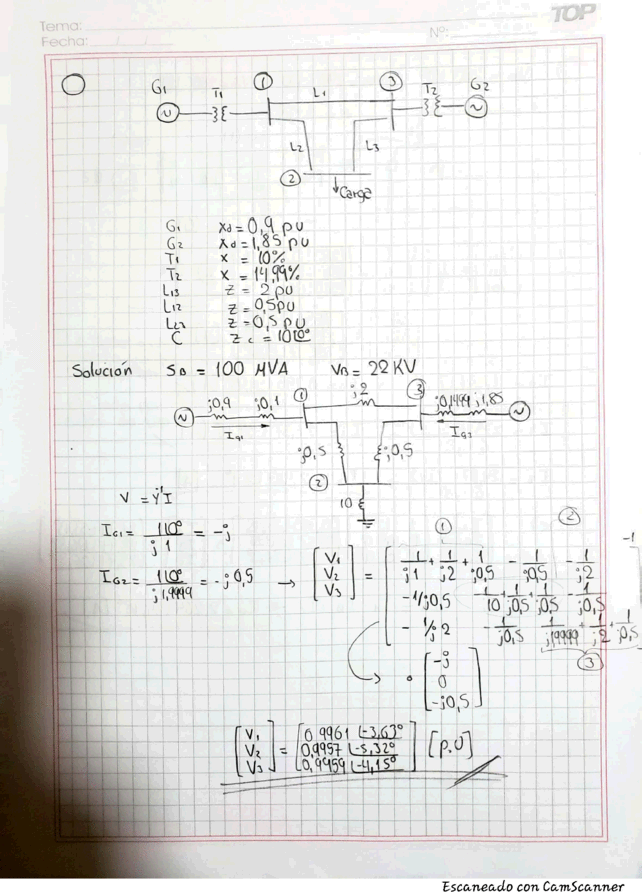 TOP
Tema:
Nº:
Fecha:
G1
T1
1
L1
3
T2
G2
L2
L3
2
Carga
G1 xd = 0,9 pu
G2 xd = 1,85 pu
T1 x = 10%
T2 x = 14,99%
L13 z = 2 pu
L12 z = 0,5 pu
L23 z = 0,5 pu
C zc = 10∠0°
Solución SB = 100 MVA VB = 22 KV
j0,9 j0,1 1 j2 3 j0,1499 j1,85
IG1 IG2
j0,5 j0,5
2
10
V = Y⁻¹I
IG1 = 1∠0° / j1 = -j
IG2 = 1∠0° / j1,9999 = -j0,5 →
1 2
[V1 V2 V3] =
1/j1 + 1/j2 + 1/j0,5 -1/j0,5 -1/j2
-1/j0,5 1/10 + 1/j0,5 + 1/j0,5 -1/j0,5
-1/j2 -1/j0,5 1/j1,9999 + 1/j2 + 1/j0,5
-1
3
• [-j 0 -j0,5]
[V1 V2 V3] = [0,9961 ∠-3,63° 0,9957 ∠-5,32° 0,9959 ∠-4,15°] [p.u]
Escaneado con CamScanner